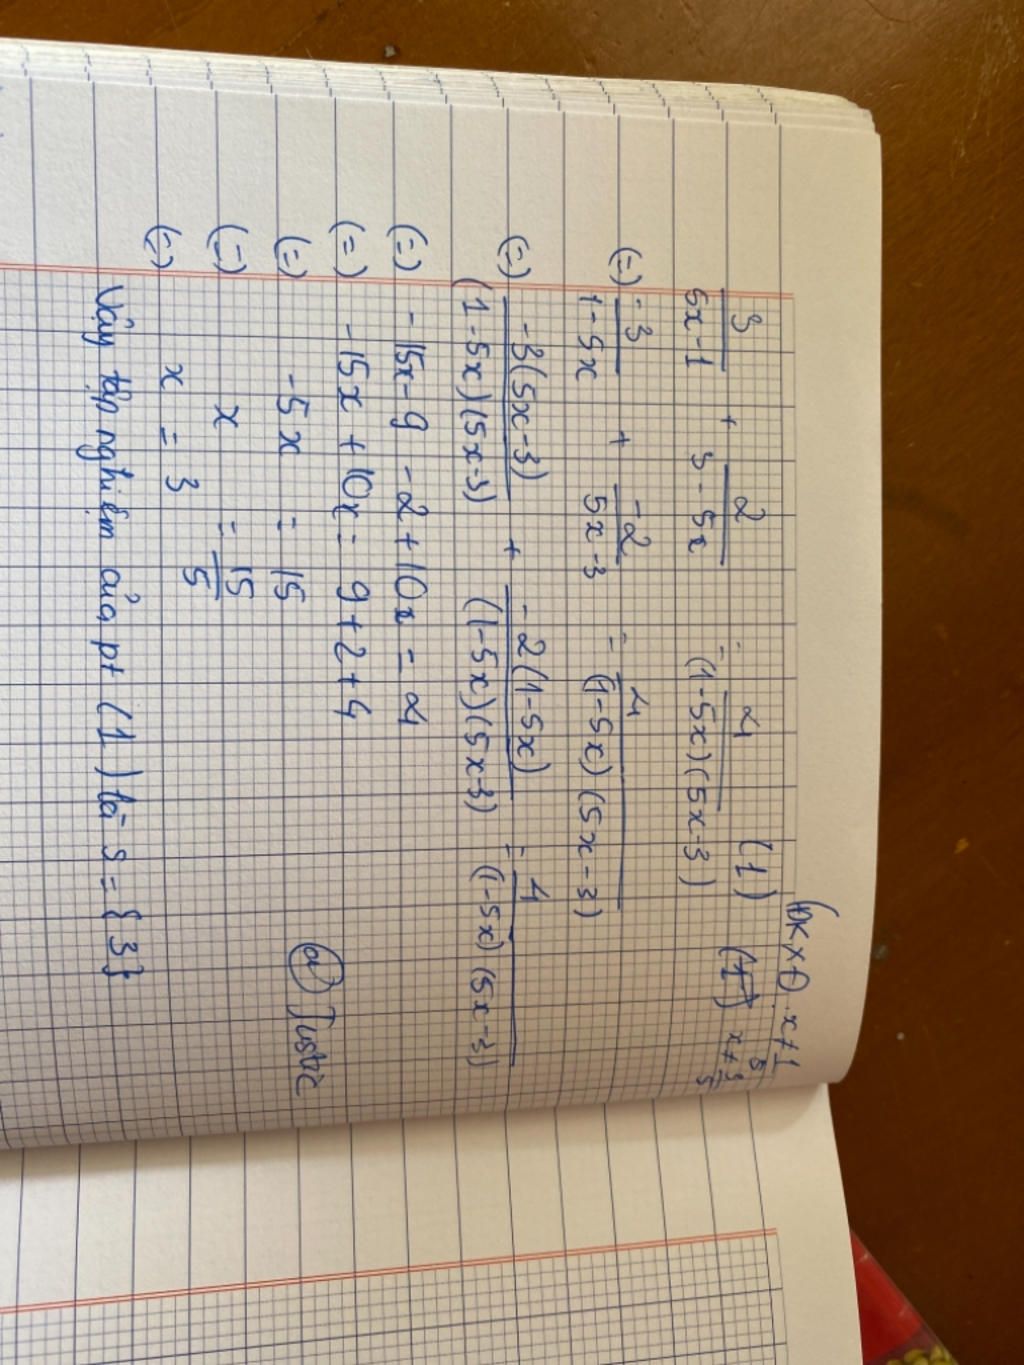 ĐKXĐ: x ≠ 1/5
3/(5x-1) + 2/(3-5x) = 4/((1-5x)(5x-3)) (1) x ≠ 3/5
(=) -3/(1-5x) + -2/(5x-3) = 4/((1-5x)(5x-3))
(=) -3(5x-3)/((1-5x)(5x-3)) + -2(1-5x)/((1-5x)(5x-3)) = 4/((1-5x)(5x-3))
(=) -15x-9-2+10x = 4
(=) -15x+10x = 9+2+4
(=) -5x = 15
(=) x = 15/5
(=) x = 3
Vậy tập nghiệm của pt (1) là S = {3}